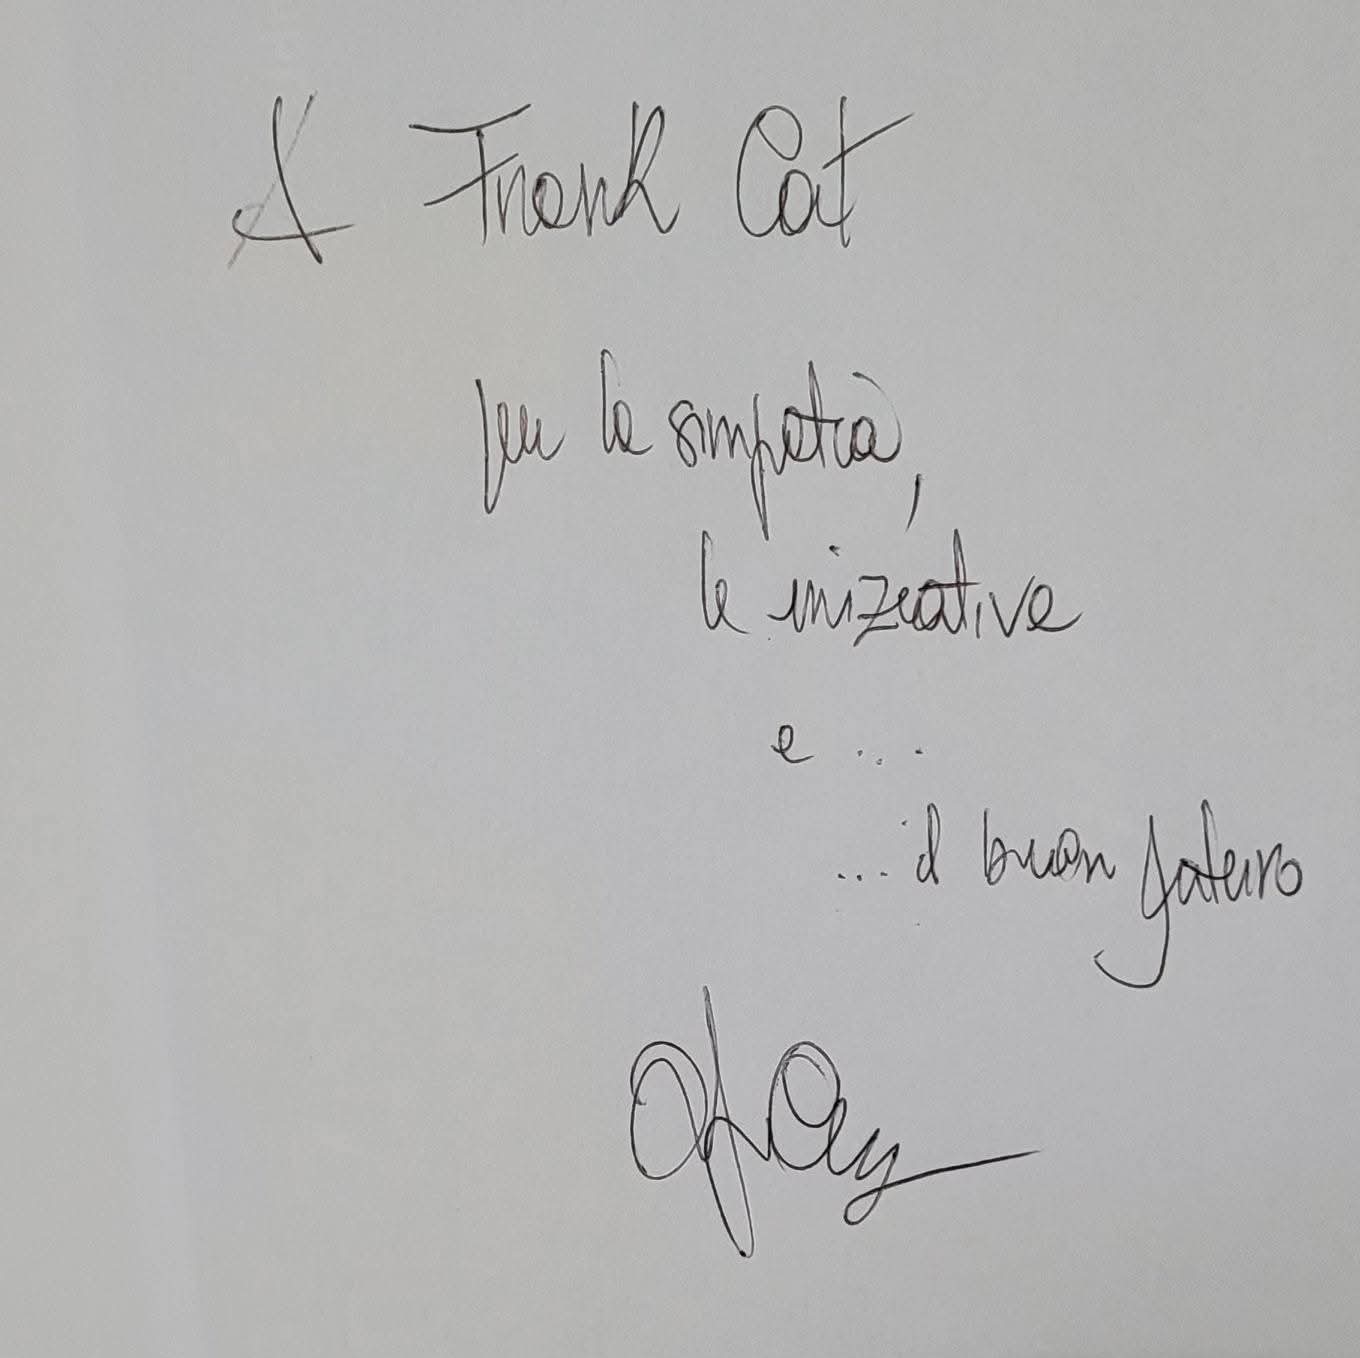 A Frank Cat
per la simpatia,
le iniziative
e ...
... il buon